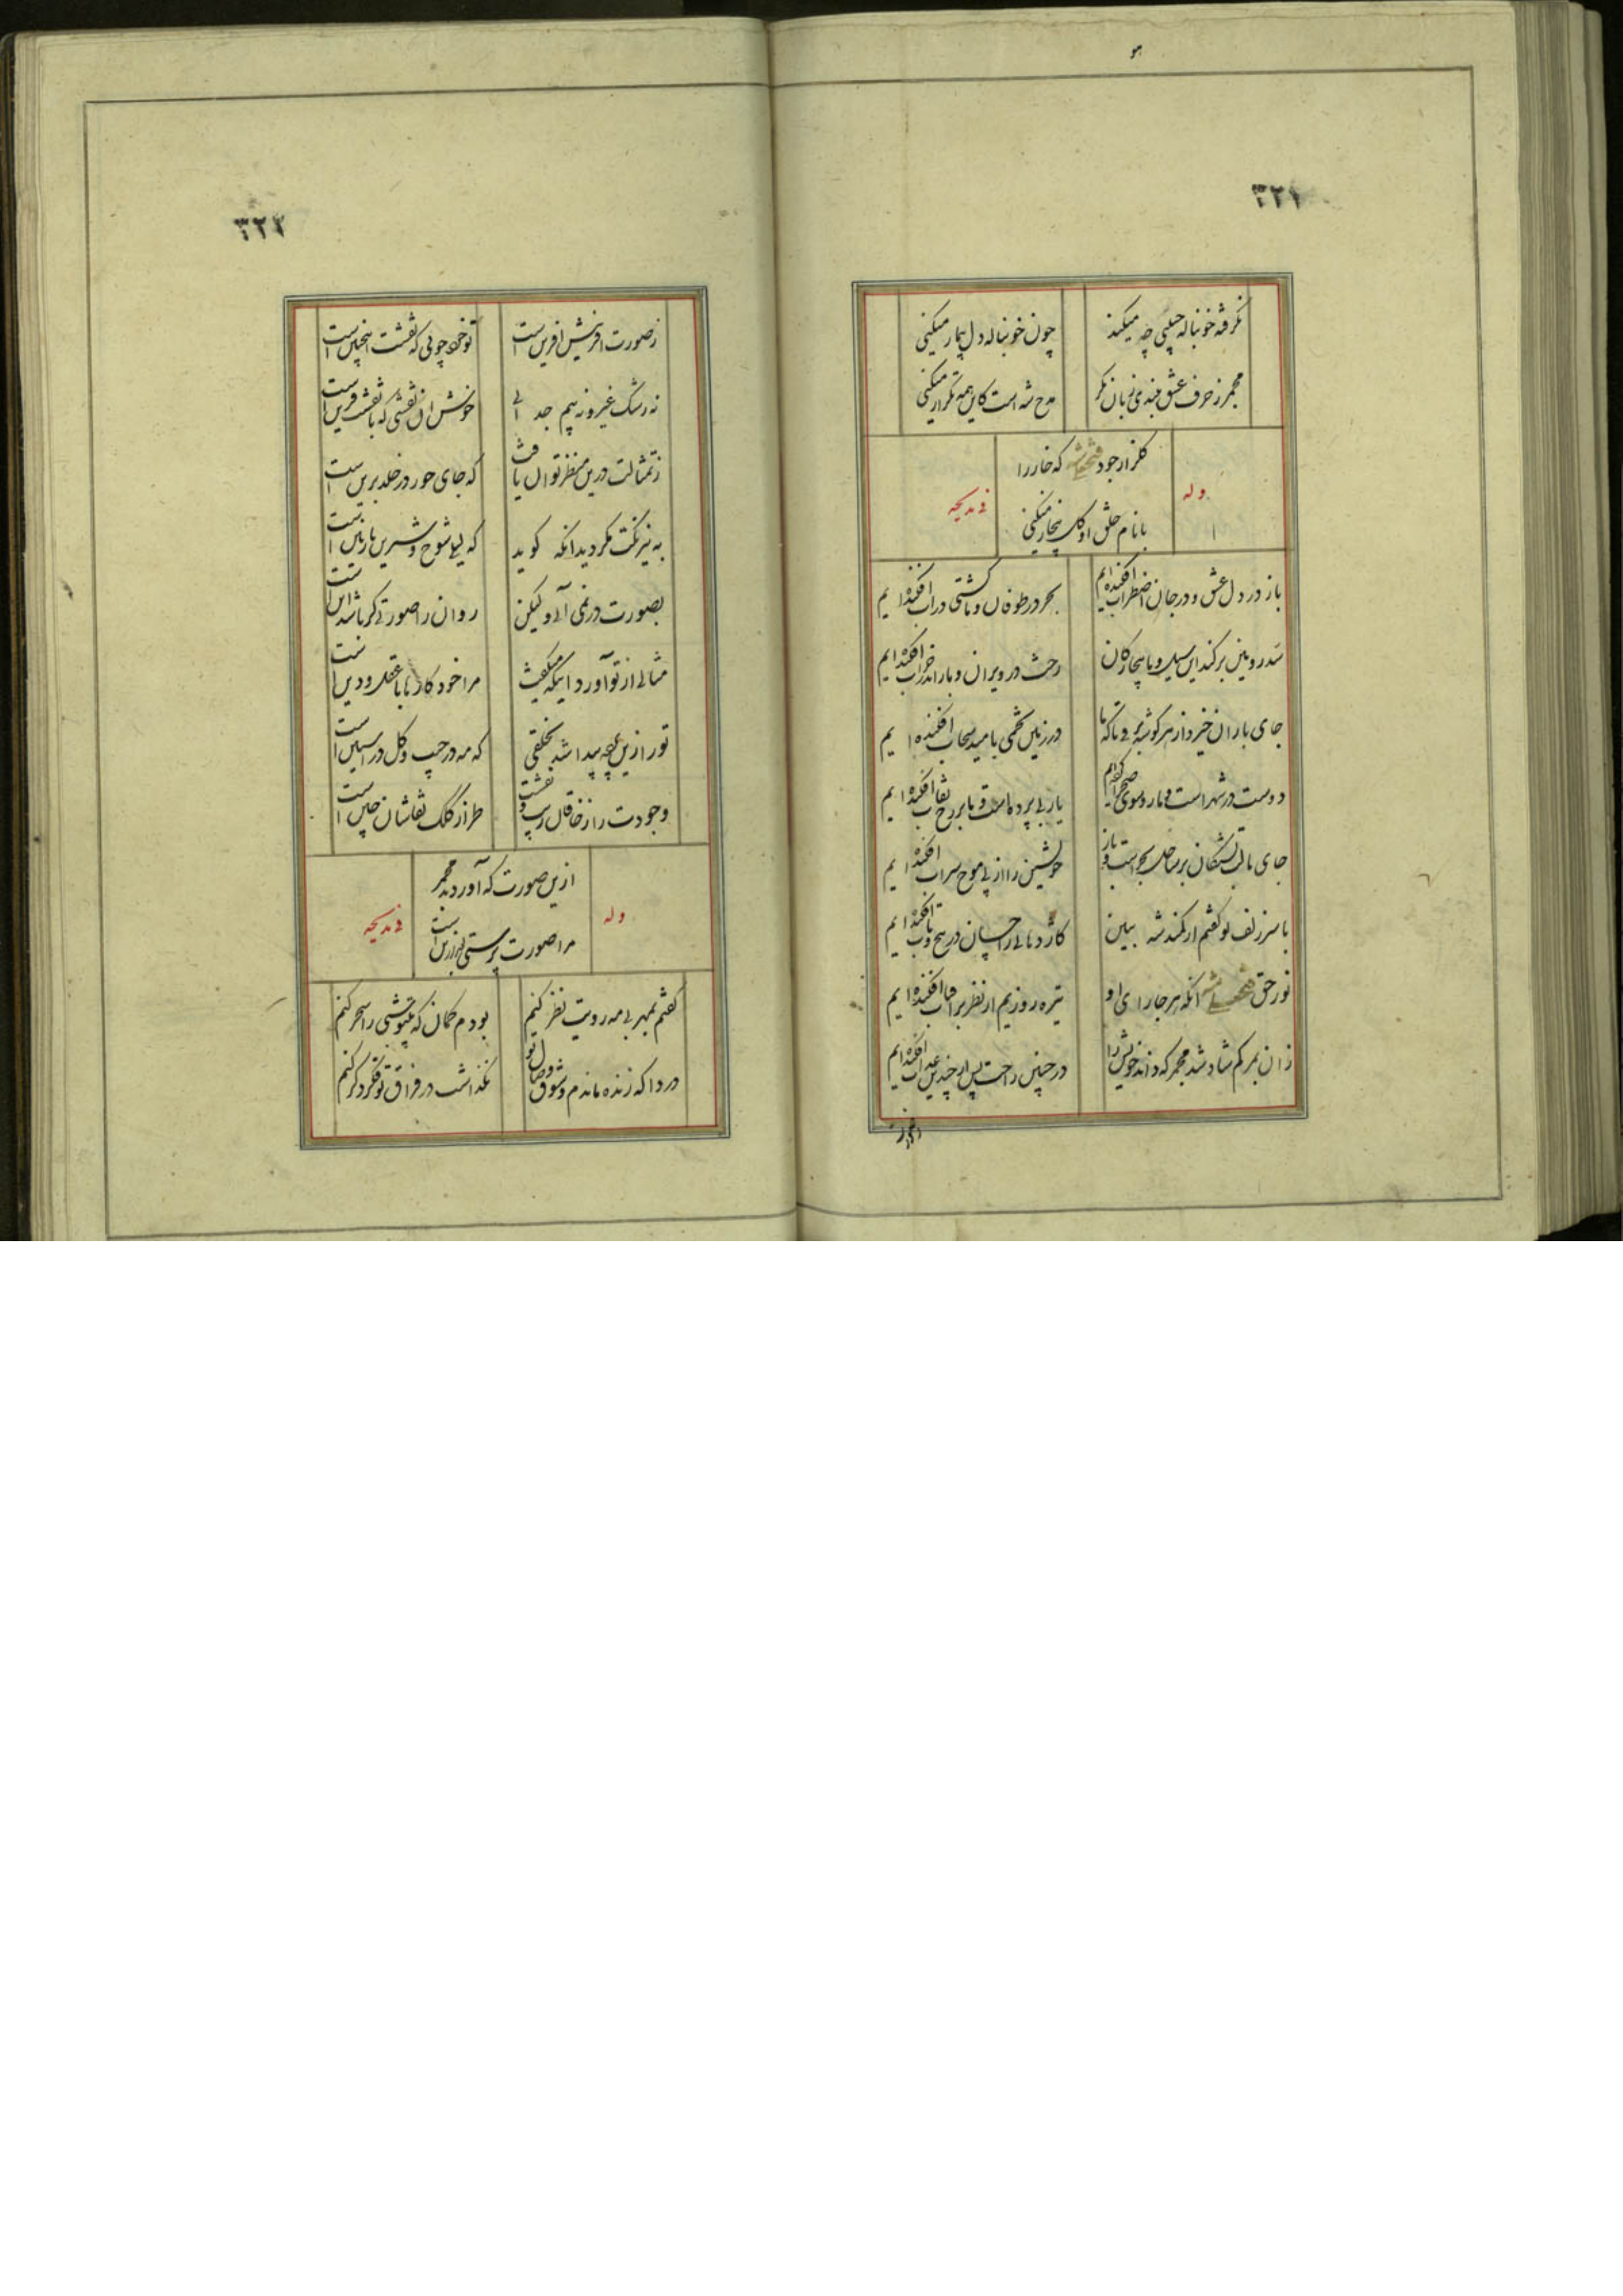 هو
۳۲۱
نگرفته خونباله چینی چه میکند
چون خونباله دل بیمار میکنی
مجمر ز حرف عشق نبندی زبان مگر
مدح شه است کاین همه تکرار میکنی
وله
گلزار جود فتحعلیشه که خار را
با نام خلق او گل بیخار میکنی
فی مدیحه
باز در دل عشق و در جان اضطراب افکنده ایم
بحر در طوفان و ما کشتی در آب افکنده ایم
سد رویین برکند این سیل و ما بیچارگان
رخت در ویران و بار اندر خراب افکنده ایم
جای باران خیزد از هر گوشه برقی تا که ما
در زمین تخمی بامید سحاب افکنده ایم
دوست در شهر است و ما رو سوی صحرا کرده ایم
یار بی پرده است و ما بر رخ نقاب افکنده ایم
جای ما لب تشنگان بر ساحل بحر است و باز
خویشتن را از پی موج سراب افکنده ایم
با سر زلف تو گفتم از کمند شه ببین
کاژدهائی را چسان در پیچ و تاب افکنده ایم
نور حق فتحعلیشه آنکه هر جا رای او
تیره روزیم از نظر بر آفتاب افکنده ایم
زان بمرگم شاد شد مجمر که داند خویش را
در چنین راحت پس از چندین عذاب افکنده ایم
۳۲۲
ز صورت آفرینش آفرین است
تو خود چونی که نقشت اینچنین است
نه رشک غیر و نه بیم جدائی
خوش آن نقشی که با نقشت قرین است
ز تمثالت درین منظر توان یافت
که جای حور در خلد برین است
به نیرنگت نگردید آنکه گوید
که لیلی شوخ و شیرین نازنین است
بصورت در نمی آئی ولیکن
روان را صورتی گر باشد این است
مثالی از تو آورد اینکه میگفت
مرا خود کارها با عقل و دین است
تو را زین جامه پیدا شد بخلقی
که مه در جیب و گل در آستین است
وجودت راز خاقان زیب و نقشت
طراز کلک نقاشان چین است
وله
ازین صورت که آوردند مجمر
مرا صورت پرستی بعد ازین است
فی مدیحه
گفتم بمهر بی مه رویت نظر کنیم
بودم گمان که بیتو شبی را سحر کنم
دردا که زنده ماندم و شوق وصال تو
نگذاشت در فراق تو فکر دگر کنم